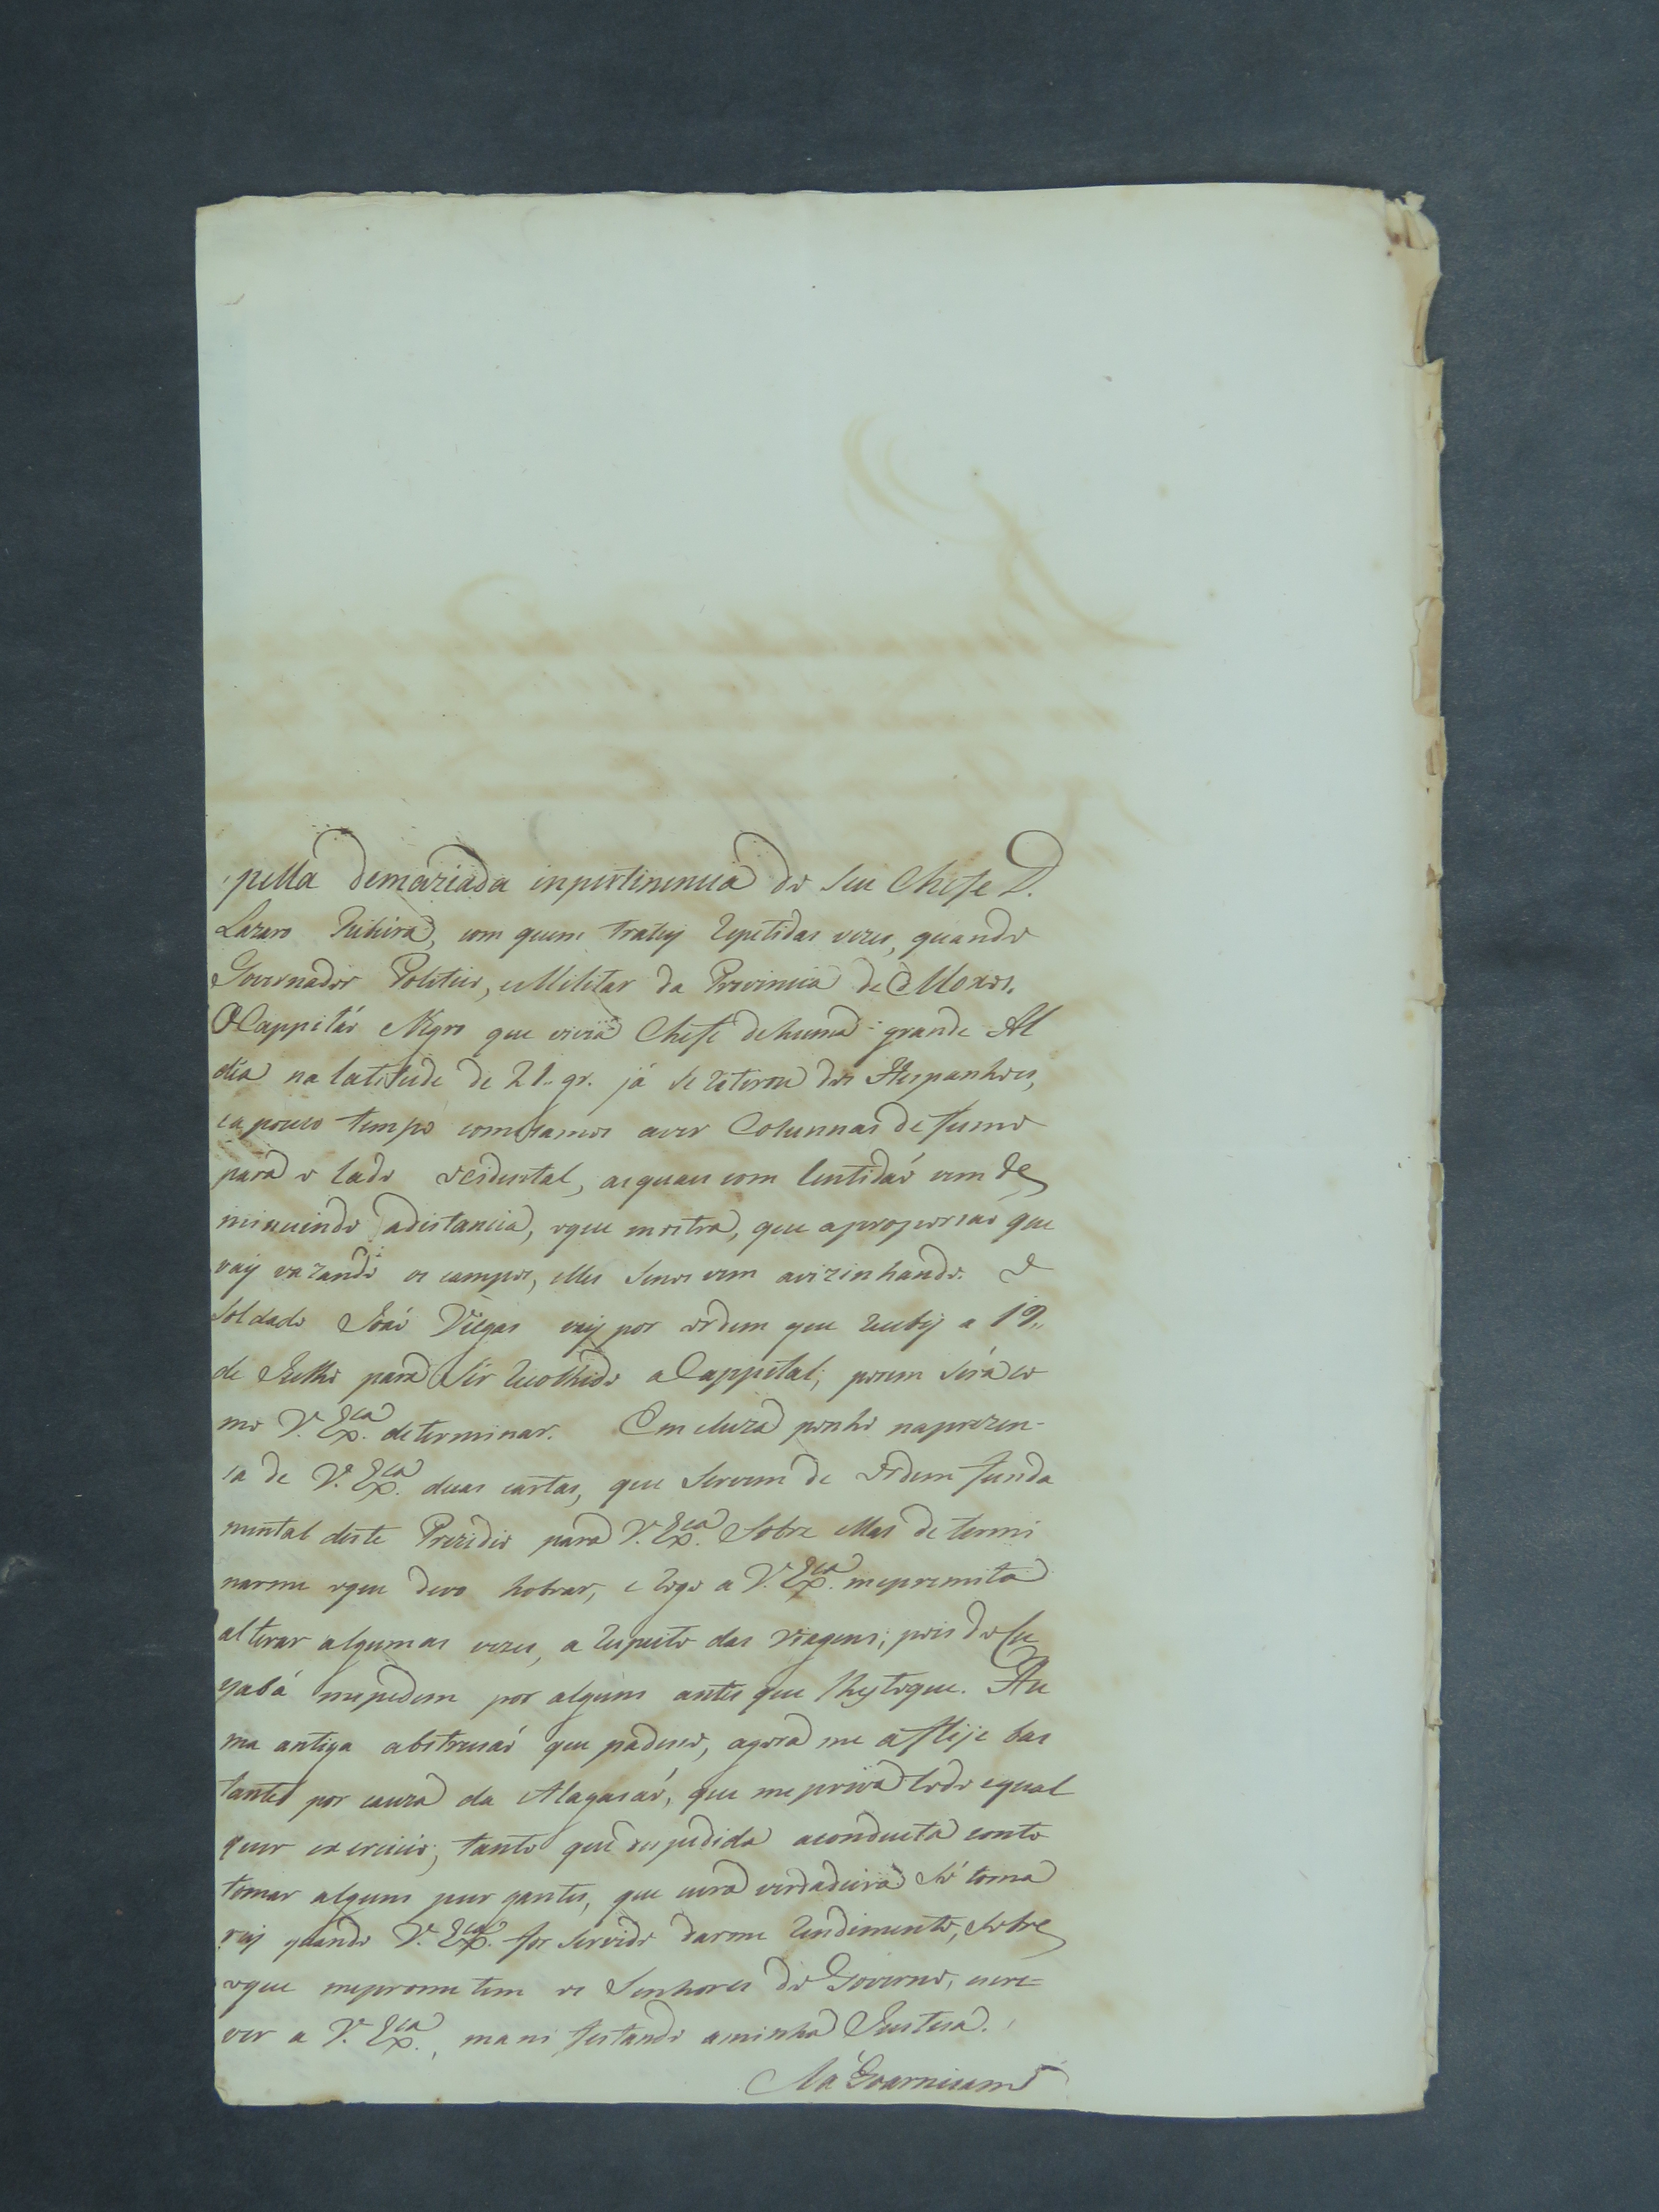 pella demaziada inpertinencia do seu Chefe D.
Lazaro Ribeira, com quem tratey repetidas vezes, quando
Governador Politico, e Militar da Provincia de Moxos.
O Cappitaõ Negro que vivia Chefe de huma grande Al
déa na latitude de 21. gr. já se retirou dos Hespanhoes,
e a pouco tempo comesamos aver Columnas de fumo
para o lado ocidental, as quaes com lentidaõ vem de
minuindo adistancia, oque mostra, que aproporsaõ que
vay vazando os campos, elles senos vem avizinhando. O
Soldado Joaõ Viegas vay por ordem que recebij a 19,,
de Julho para sér recolhido a Cappital; porem será co
mo V. Exca. determinar. Com cluza ponho naprezen-
sa de V. Exca. duas cartas, que servem de ordem funda
mental deste Prezidio para V. Exca. sobre ellas determi
narme oque devo hobrar, e rogo a V. Exca. mepremita
alterar algumas vezes, a respeito das viagens; pois do Cu
yabá mepedem por alguns antes que lhe toque. Hu
ma antiga abstrusaõ que padeso, agora me aflije bas
tante por cauza da Alagasaõ, que mepriva todo equal
quer exercicio; tanto que despedida aconducta conto
tomar alguns purgantes, que cura verdadeira só toma
rey quando V. Exca. for servido darme rendimento, sobre
oque meprometem os Senhores do Governo, escre=
ver a V. Exca., manifestando aminha Justesa.
Na Goarnisam